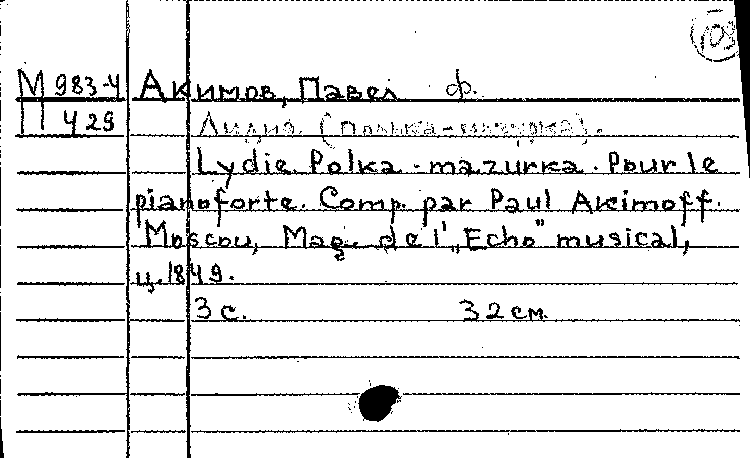 109
М 983-4 Акимов, Павел ф.
П 429 Лидия (полька-мазурка).
Lydie Polka-mazurka. Pour le
pianoforte. Comp. par Paul Akimoff.
Moscou, Mag. de l'„Echo" musical,
ц. 1849.
3 с. 32 см.